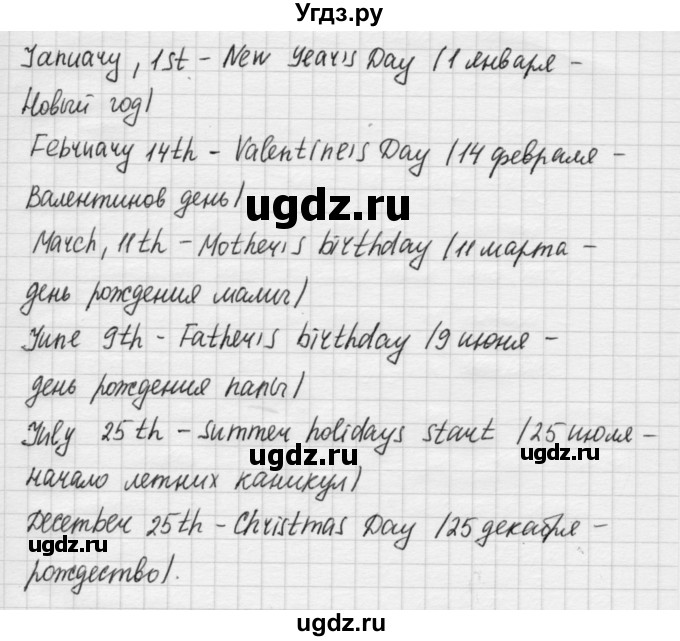 Угдз.ру
January, 1st - New Year's Day /1 января -
Новый год/
February 14th - Valentine's Day /14 февраля -
Валентинов день/
ugdz.ru
March, 11th - Mother's birthday /11 марта -
день рождения мамы/
June 9th - Father's birthday /9 июня -
день рождения папы/
July 25th - summer holidays start /25 июля -
ugdz.ru ugdz.ru
начало летних каникул/
December 25th - Christmas Day /25 декабря -
ugdz.ru
рождество/.
ugdz.ru